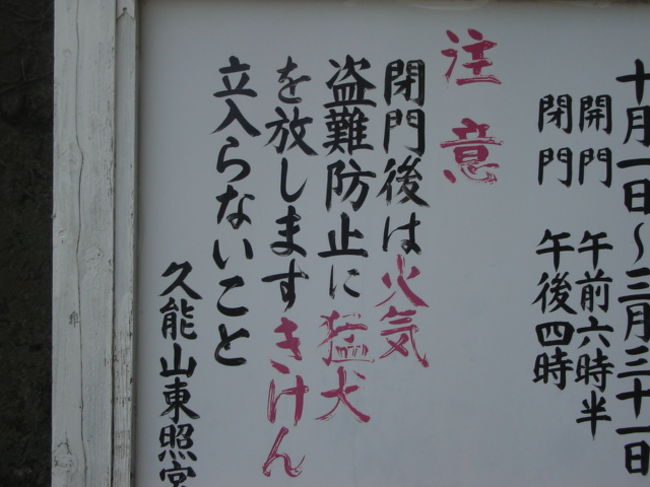 十月一日～三月三十一日
開門 午前六時半
閉門 午後四時
注意
閉門後は火気
盗難防止に猛犬
を放しますきけん
立入らないこと
久能山東照宮